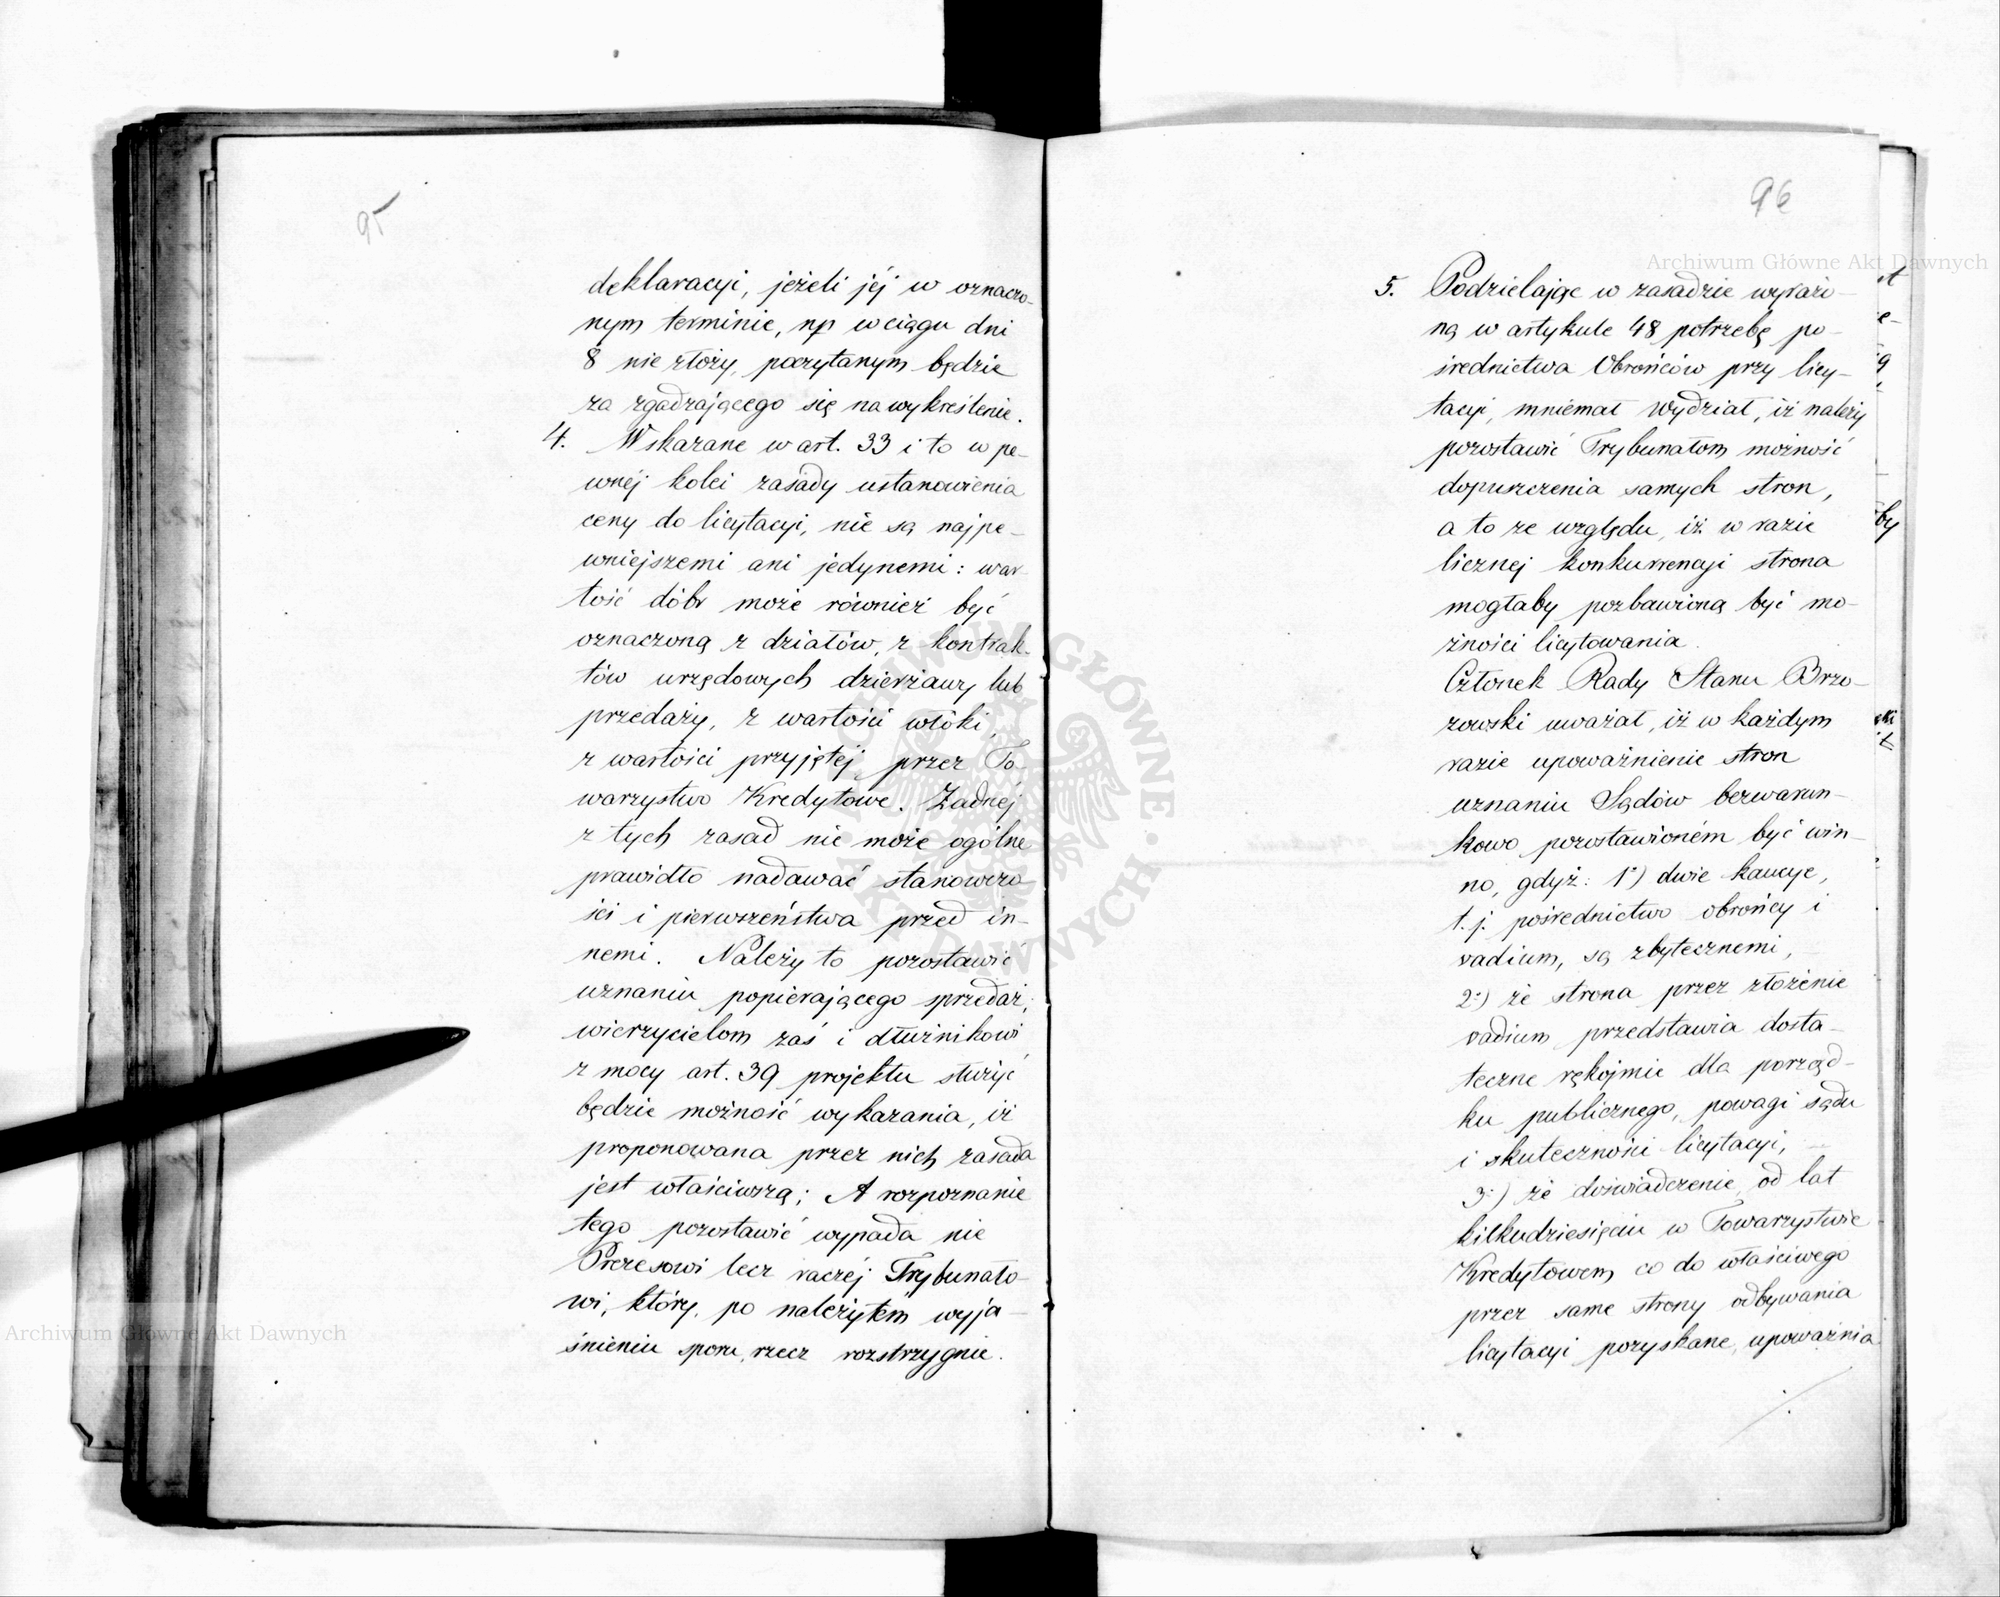 95
deklaracyi, jeżeli jéj w oznaczo-
nym terminie, np w ciągu dni
8 nie złoży, poczytanym będzie
za zgadzającego się na wykreślenie.
4. Wskazane w art. 33 i to w pe-
wnéj kolei zasady ustanowienia
ceny do licytacyi, nie są najpe-
wniejszemi ani jedynemi: war-
tość dóbr może również być
oznaczoną z działów, z kontrak-
tów urzędowych dzierżawy lub
przedaży, z wartości włóki,
z wartości przyjętéj przez To-
warzystwo Kredytowe. Żadnéj
z tych zasad nie może ogólne
prawidło nadawać stanowczo
ści i pierwszeństwa przed in-
nemi. Należy to pozostawić
uznaniu popierającego sprzedaż;
wierzycielom zaś i dłużnikowi
z mocy art. 39 projektu służyć
będzie możność wykazania, iż
proponowana przez nich zasada
jest właściwszą; A rozpoznanie
tego pozostawić wypada nie
Prezesowi lecz raczéj Trybunało-
wi, który, po należytém wyja-
śnieniu sporu, rzecz rozstrzygnie.
96
5. Podzielając w zasadzie wyrażo-
ną w artykule 48 potrzebę po-
średnictwa Obrońców przy licy-
tacyi, mniemał Wydział, iż należy
pozostawić Trybunałom możność
dopuszczenia samych stron,
a to ze względu, iż w razie
licznej konkurrencyi strona
mogłaby pozbawioną być mo-
żności licytowania.
Członek Rady Stanu Brzo-
zowski uważał, iż w każdym
razie upoważnienie stron
uznaniu Sądów bezwarun-
kowo pozostawioném być win-
no, gdyż: 1°) dwie kaucye,
t. j. pośrednictwo obrońcy i
vadium, są zbytecznemi,
2°) że strona przez złożenie
vadium przedstawia dosta-
teczne rękojmie dla porząd-
ku publicznego, powagi sądu
i skuteczności licytacyi,
3°) że doświadczenie od lat
kilkudziesięciu w Towarzystwie
Kredytowem co do właściwego
przez same strony odbywania
licytacyi pozyskane, upoważnia
Archiwum Główne Akt Dawnych
Archiwum Główne Akt Dawnych
ARCHIWUM GŁÓWNE AKT DAWNYCH